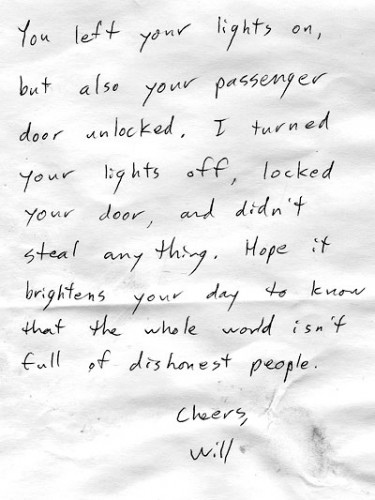 You left your lights on,
but also your passenger
door unlocked. I turned
your lights off, locked
your door, and didn't
steal anything. Hope it
brightens your day to know
that the whole world isn't
full of dishonest people.
Cheers,
Will